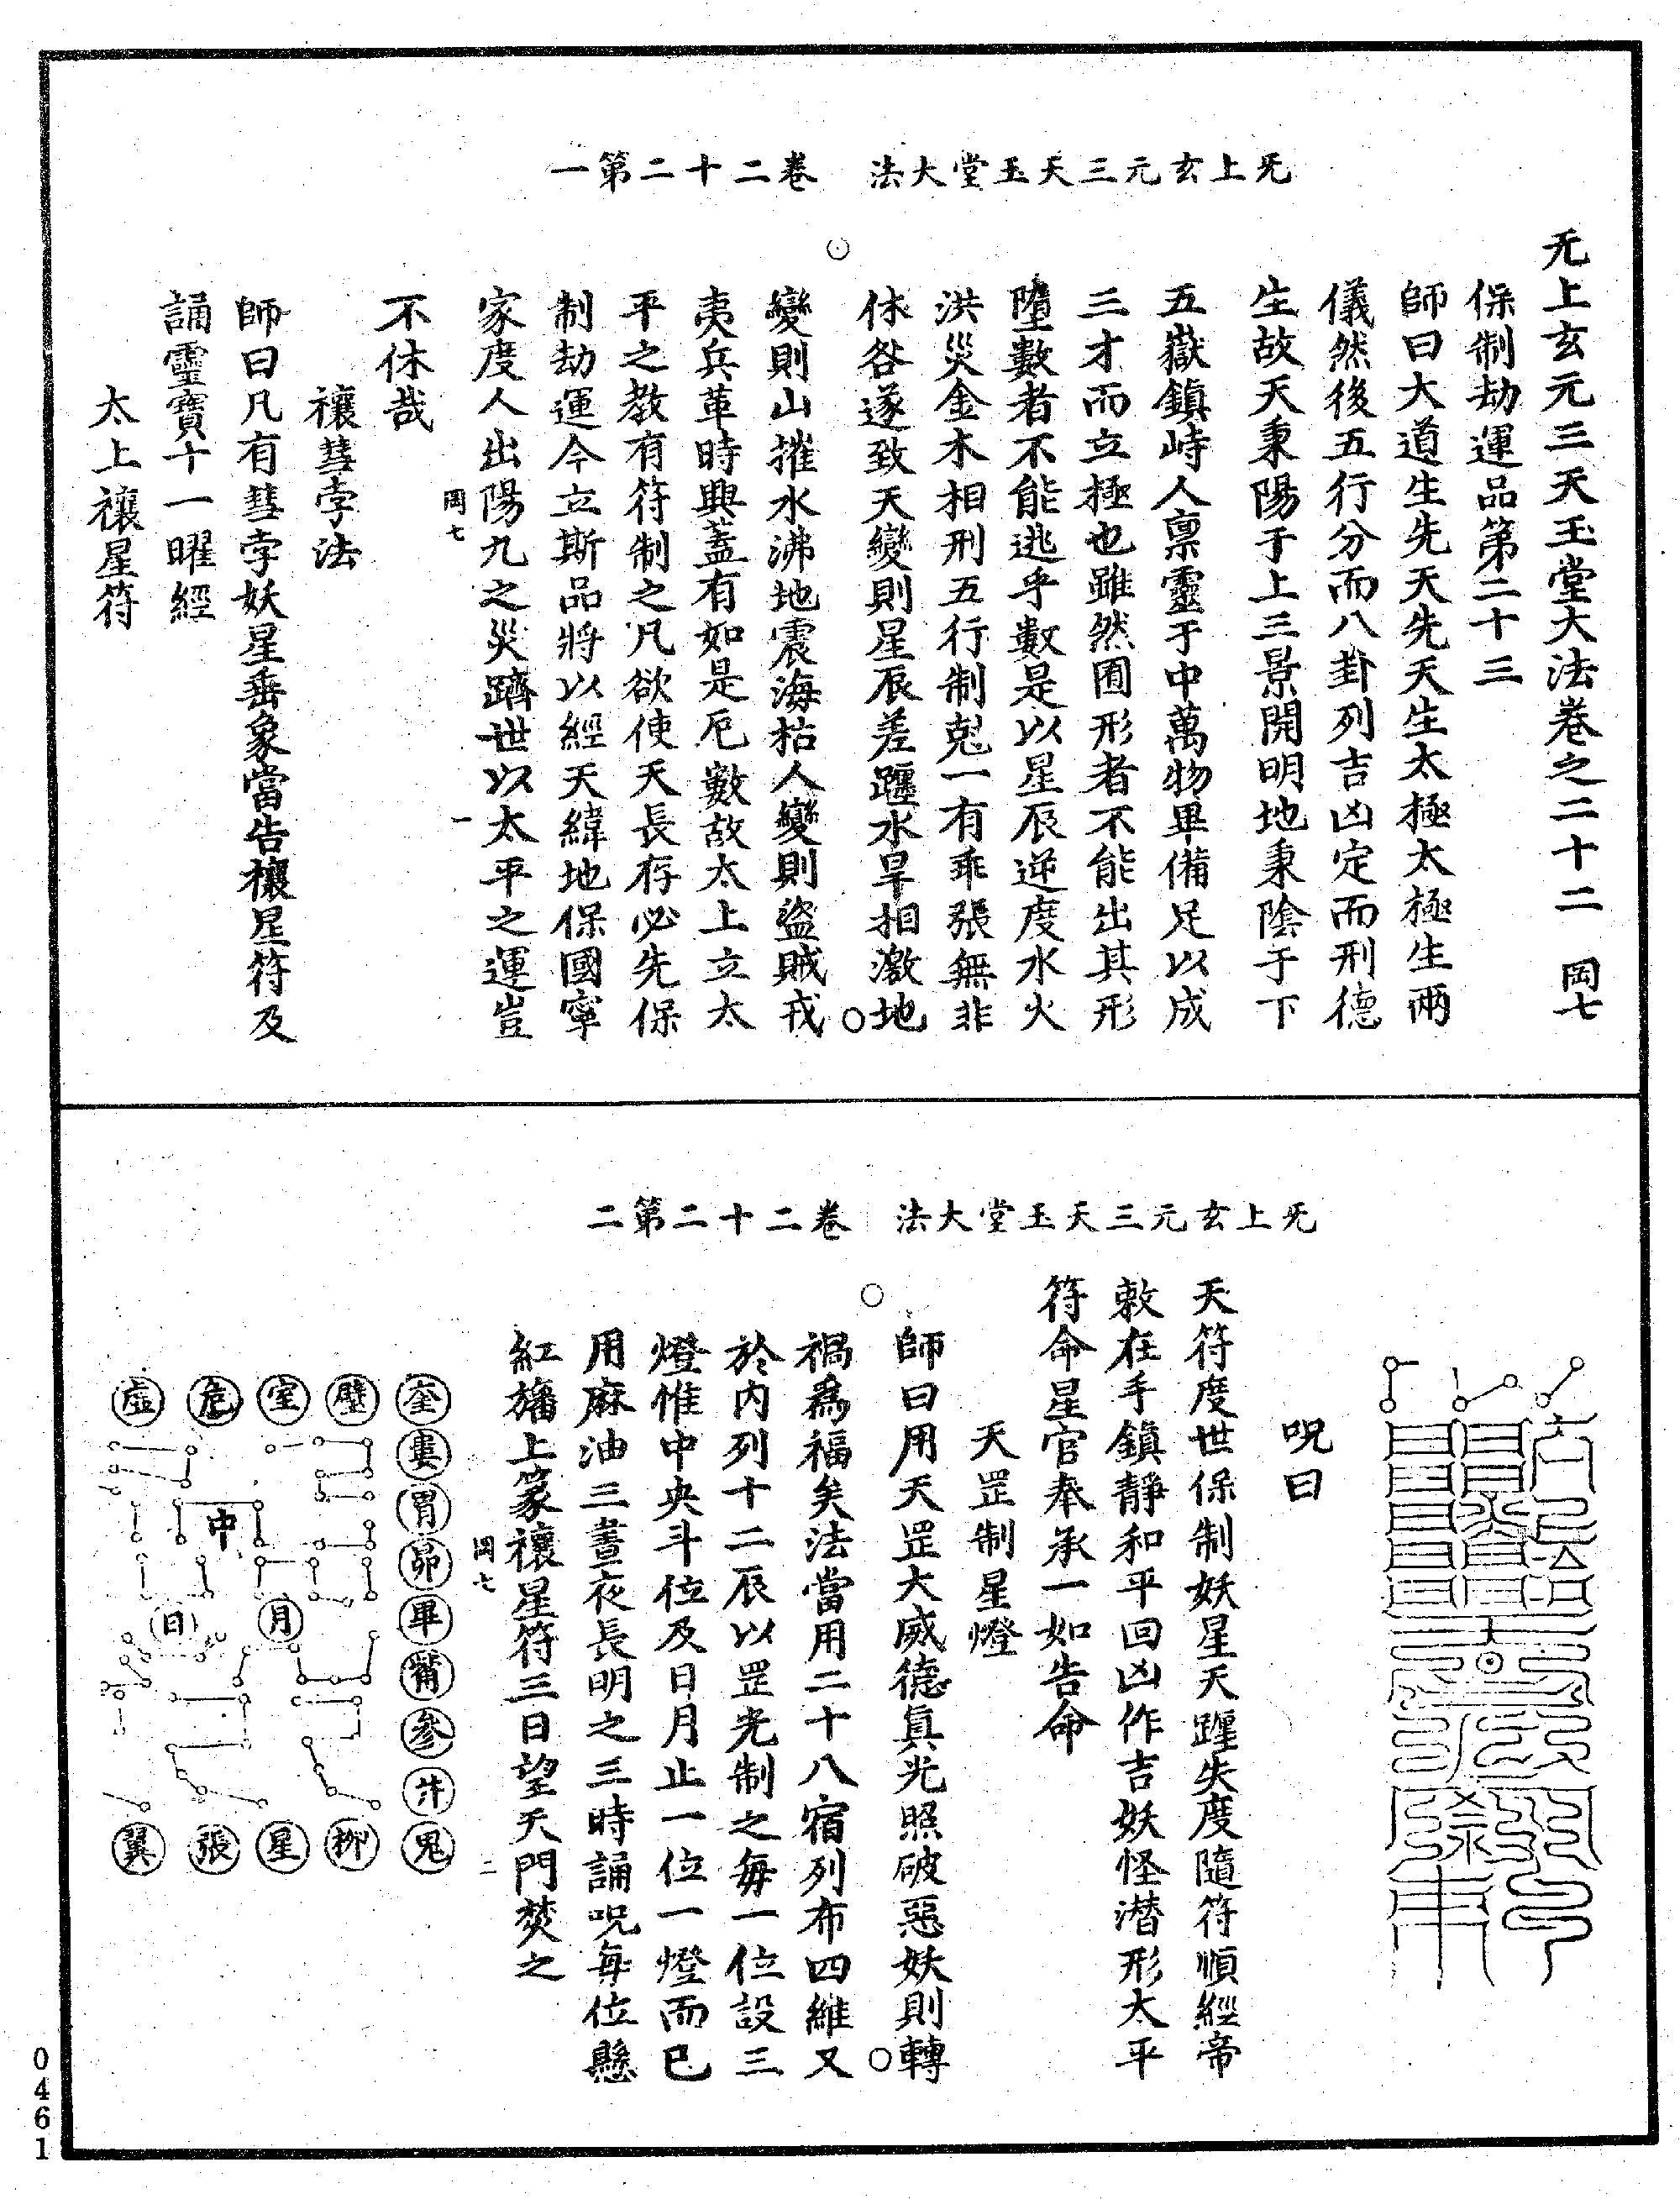 无上玄元三天玉堂大法　卷二十二第一
无上玄元三天玉堂大法卷之二十二　岡七
保制劫運品第二十三
師曰大道生先天先天生太極太極生兩
儀然後五行分而八卦列吉凶定而刑德
生故天秉陽于上三景開明地秉陰于下
五嶽鎮峙人禀靈于中萬物畢備足以成
三才而立極也雖然囿形者不能出其形
墮數者不能逃乎數是以星辰逆度水火
洪災金木相刑五行制尅一有乖張無非
休咎遂致天變則星辰差躔水旱相激地
變則山摧水沸地震海枯人變則盜賊戎
夷兵革時興蓋有如是厄數故太上立太
平之教有符制之凡欲使天長存必先保
制劫運今立斯品將以經天緯地保國寧
家度人出陽九之災躋世以太平之運豈
岡七　一
不休哉
禳彗孛法
師曰凡有彗孛妖星垂象當告禳星符及
誦靈寶十一曜經
太上禳星符
无上玄元三天玉堂大法　卷二十二第二
呪曰
天符度世保制妖星天躔失度隨符順經帝
敕在手鎮靜和平回凶作吉妖怪潛形太平
符命星官奉承一如告命
天罡制星燈
師曰用天罡大威德真光照破惡妖則轉
禍為福矣法當用二十八宿列布四維又
於内列十二辰以罡光制之每一位設三
燈惟中央斗位及日月止一位一燈而已
用麻油三晝夜長明之三時誦呪每位懸
紅旛上篆禳星符三日望天門焚之
岡七　二
奎
婁
胃
昴
畢
觜
參
井
鬼
壁
室
危
虛
中
月
日
柳
星
張
翼
0461